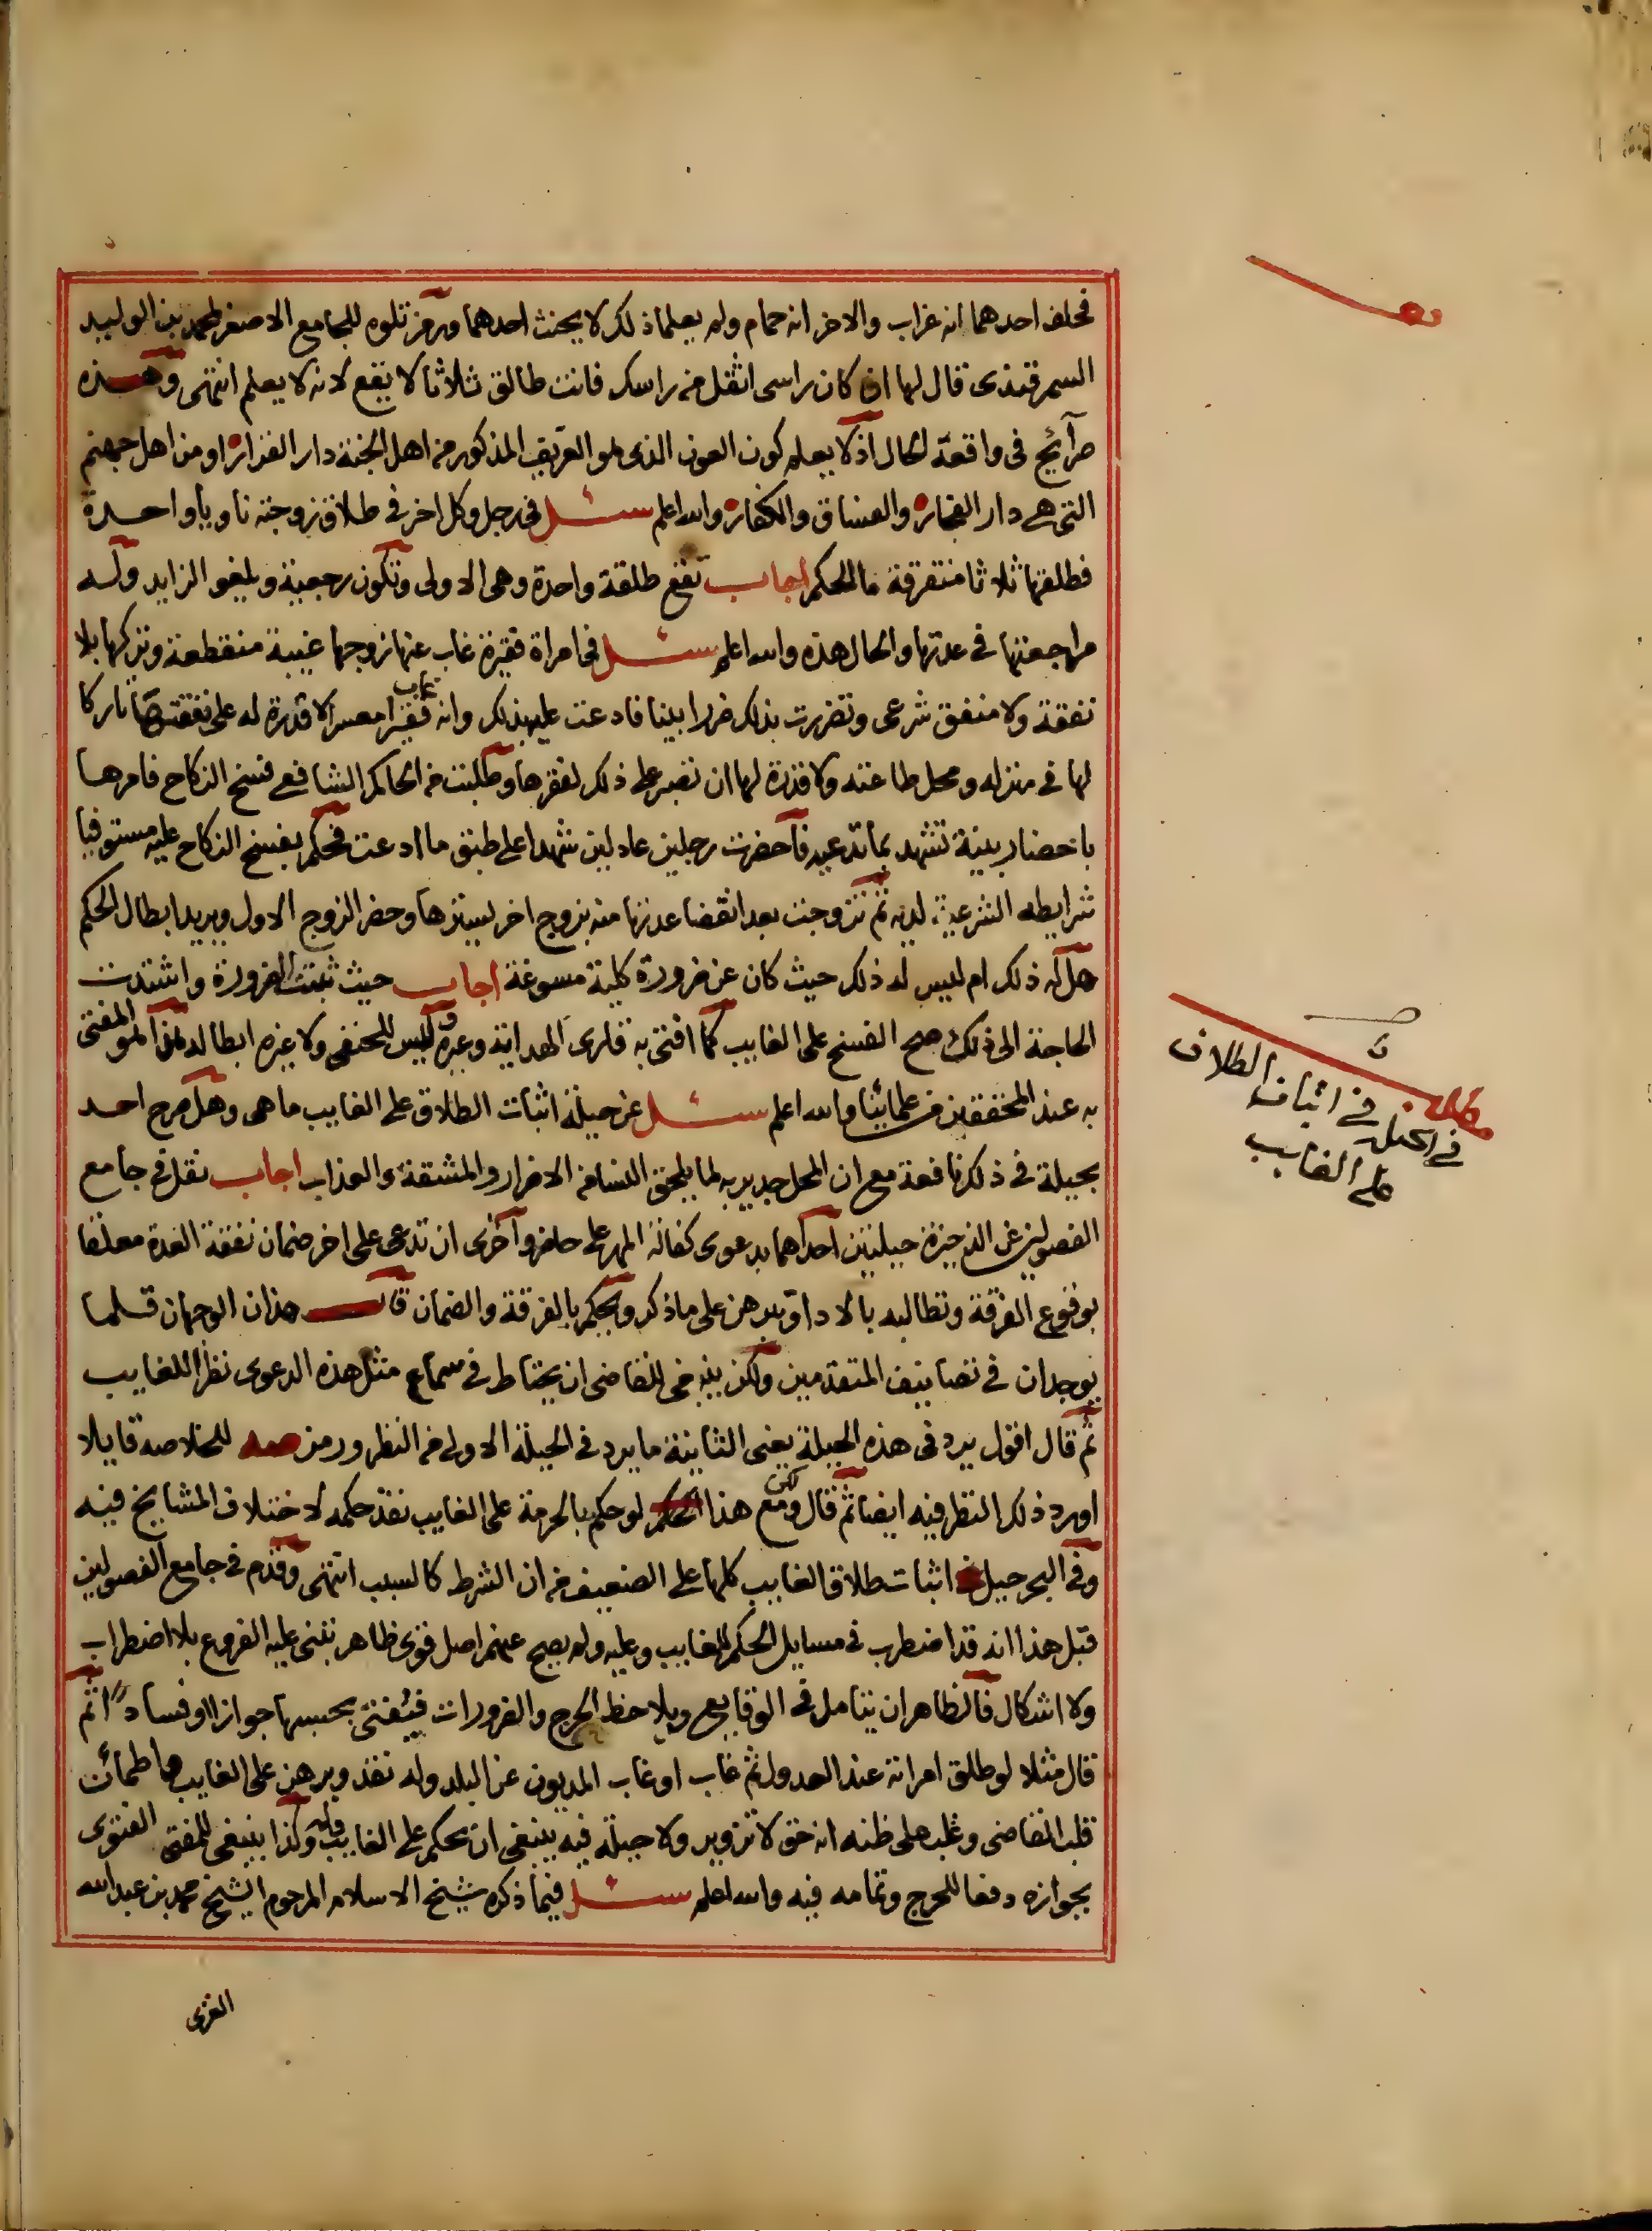 فحلف احدهما انه غراب والاخر انه حمام ولم يعلما ذلك لا يحنث احدهما ورمز تلوه للجامع الاصغر لمحمد بن الوليد
السمرقندى قال لها ان كان راسى اثقل من راسك فانت طالق ثلاثا لا يقع لانه لا يعلم انتهى وهذه
صرائح فى واقعة الحال اذ لا يعلم كون العون الذى هو القريب المذكور من اهل الجنة دار القرار او من اهل جهنم
التى هى دار الفجار والفساق والكفار والله اعلم سئل فى رجل وكل اخر فى طلاق زوجته ناويا واحدة
فطلقها ثلاثا متفرقة ما الحكم اجاب تقع طلقة واحدة وهى الاولى وتكون رجعية ويلغو الزايد وله
مراجعتها فى عدتها والحال هذه والله اعلم سئل فى امراة فقيرة غاب عنها زوجها غيبة منقطعة وتركها بلا
نفقة ولا منفق شرعى وتضررت بذلك ضررا بينا فادعت عليه بذلك وانه غاب فقيرا معسرا لا قدرة له على نفقتها تاركا
لها فى منزله ومحل طاعته ولا قدرة لها ان تصبر على ذلك لفقرها وطلبت من الحاكم الشافعى فسخ النكاح فامرها
باحضار بينة تشهد بما تدعيه فاحضرت رجلين عادلين شهدا على طبق ما ادعت فحكم بفسخ النكاح عليه مستوفيا
شرايطه الشرعية لديه ثم تزوجت بعد انقضا عدتها منه بزوج اخر ليسترها وحضر الزوج الاول ويريد ابطال الحكم
هل له ذلك ام ليس له ذلك حيث كان عن ضرورة كلية مسوغة اجاب حيث ثبتت الضرورة واشتدت
الحاجة الى ذلك صح الفسخ على الغايب كما افتى به قارى الهداية وغيره وليس للحنفى ولا غيره ابطاله لهذا المو المفتى
به عند المحققين من علمائنا والله اعلم سئل عن حيلة اثبات الطلاق على الغايب ما هى وهل صرح احد
بحيلة فى ذلك نافعة مع ان المحل جدير به لما يلحق النسا من الاضرار والمشقة والعذاب اجاب نقل فى جامع
الفصولين عن الذخيرة حيلتين احداهما بدعوى كفالة المهر على حاضر واخرى ان تدعى على اخر ضمان نفقة العدة معلقا
بوقوع الفرقة وتطالبه بالادا وتبرهن على ما ذكر ويحكم بالفرقة والضمان قال هذان الوجهان قلما
يوجدان فى تصانيف المتقدمين ولكن ينبغى للقاضى ان يحتاط فى سماع مثل هذه الدعوى نظرا للغايب
ثم قال اقول يرد فى هذه الحيلة يعنى الثانية ما يرد فى الحيلة الاولى من النظر ورمز صه للخلاصه قايلا
اورد ذلك النظر فيه ايضا ثم قال ولكن مع هذا لو حكم بالحرمة على الغايب نفذ حكمه لاختلاف المشايخ فيه
وفى البحر حيل اثبات طلاق الغايب كلها على الضعيف من ان الشرط كالسبب انتهى وقدم فى جامع الفصولين
قبل هذا انه قد اضطرب فى مسايل الحكم للغايب وعليه ولم يصح عنهم اصل قوى ظاهر تبنى عليه الفروع بلا اضطراب
ولا اشكال فالظاهر ان يتامل فى الوقايع ويلاحظ الحرج والضرورات فيفتى بحسبها جوازا او فسادا ثم
قال مثلا لو طلق امراته عند العدول ثم غاب او غاب المديون عن البلد وله نقد وبرهن على الغايب واطمأن
قلب القاضى وغلب على ظنه انه حق لا تزوير ولا حيلة فيه ينبغى ان يحكم على الغايب وله وكذا ينبغى للمفتى الفتوى
بجوازه دفعا للحرج وتمامه فيه والله اعلم سئل فيما ذكره شيخ الاسلام المرحوم الشيخ محمد بن عبد الله
الغزى
فى الحيلة فى اثبات الطلاق
على الغايب